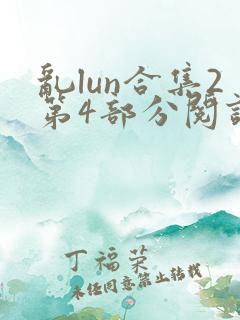 亂lun合集2
第4部分閱讀
丁福荣
未经同意禁止转载